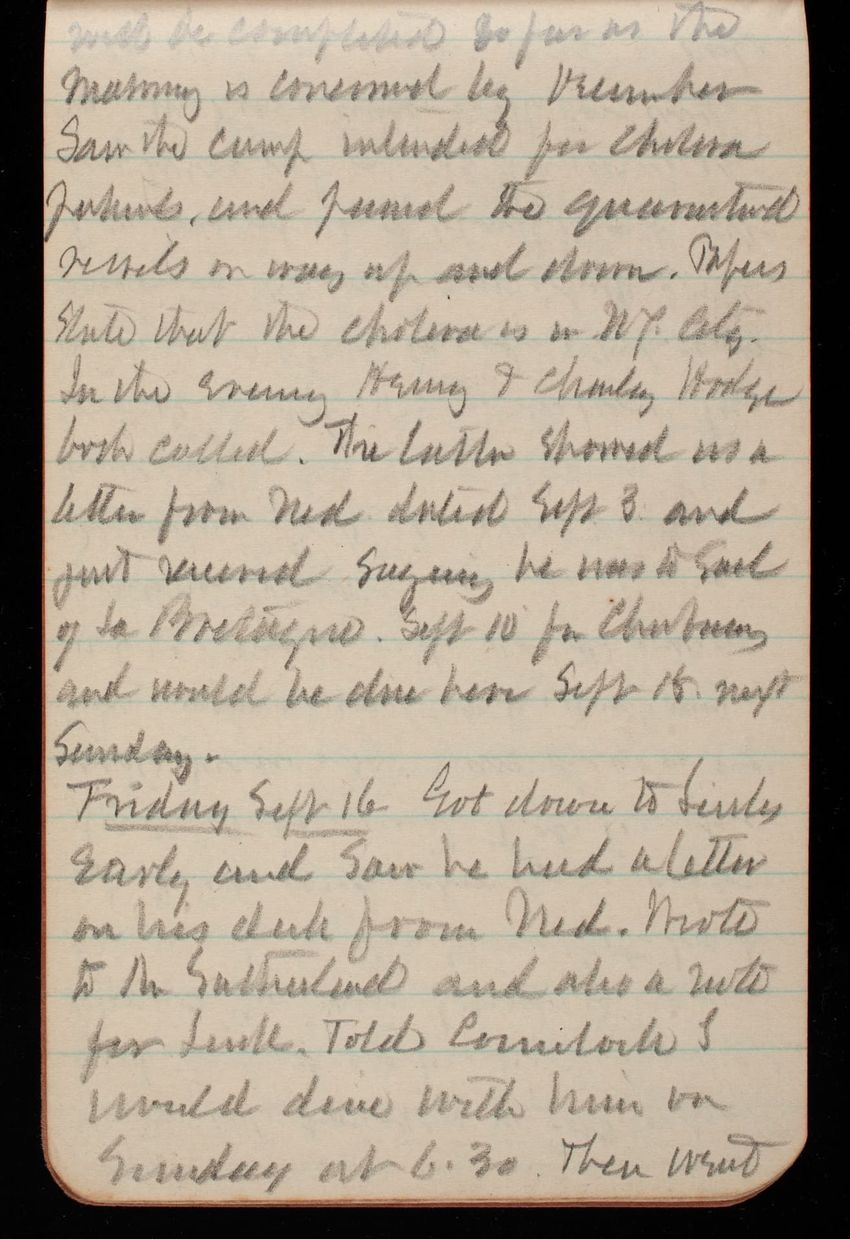 will be completed so far as the
masonry is concerned by December
Saw the camp intended for cholera
patients, and passed the quarantined
vessels on way up and down. Papers
State that the cholera is in N.Y. City.
In the evening Henry & Charley Hodge
both called. The latter showed us a
letter from Ned dated Sept 3 and
just received saying he was to Sail
of La Bretagne. Sept 10 for Cherbourg
and would be due here Sept 18. next
Sunday.
Friday Sept 16 Got down to
Early and Saw he had a letter
on his desk from Ned. Wrote
to Sutherland and also a note
for Told Comstock I
would dine with him on
Sunday at 6.30. Then went